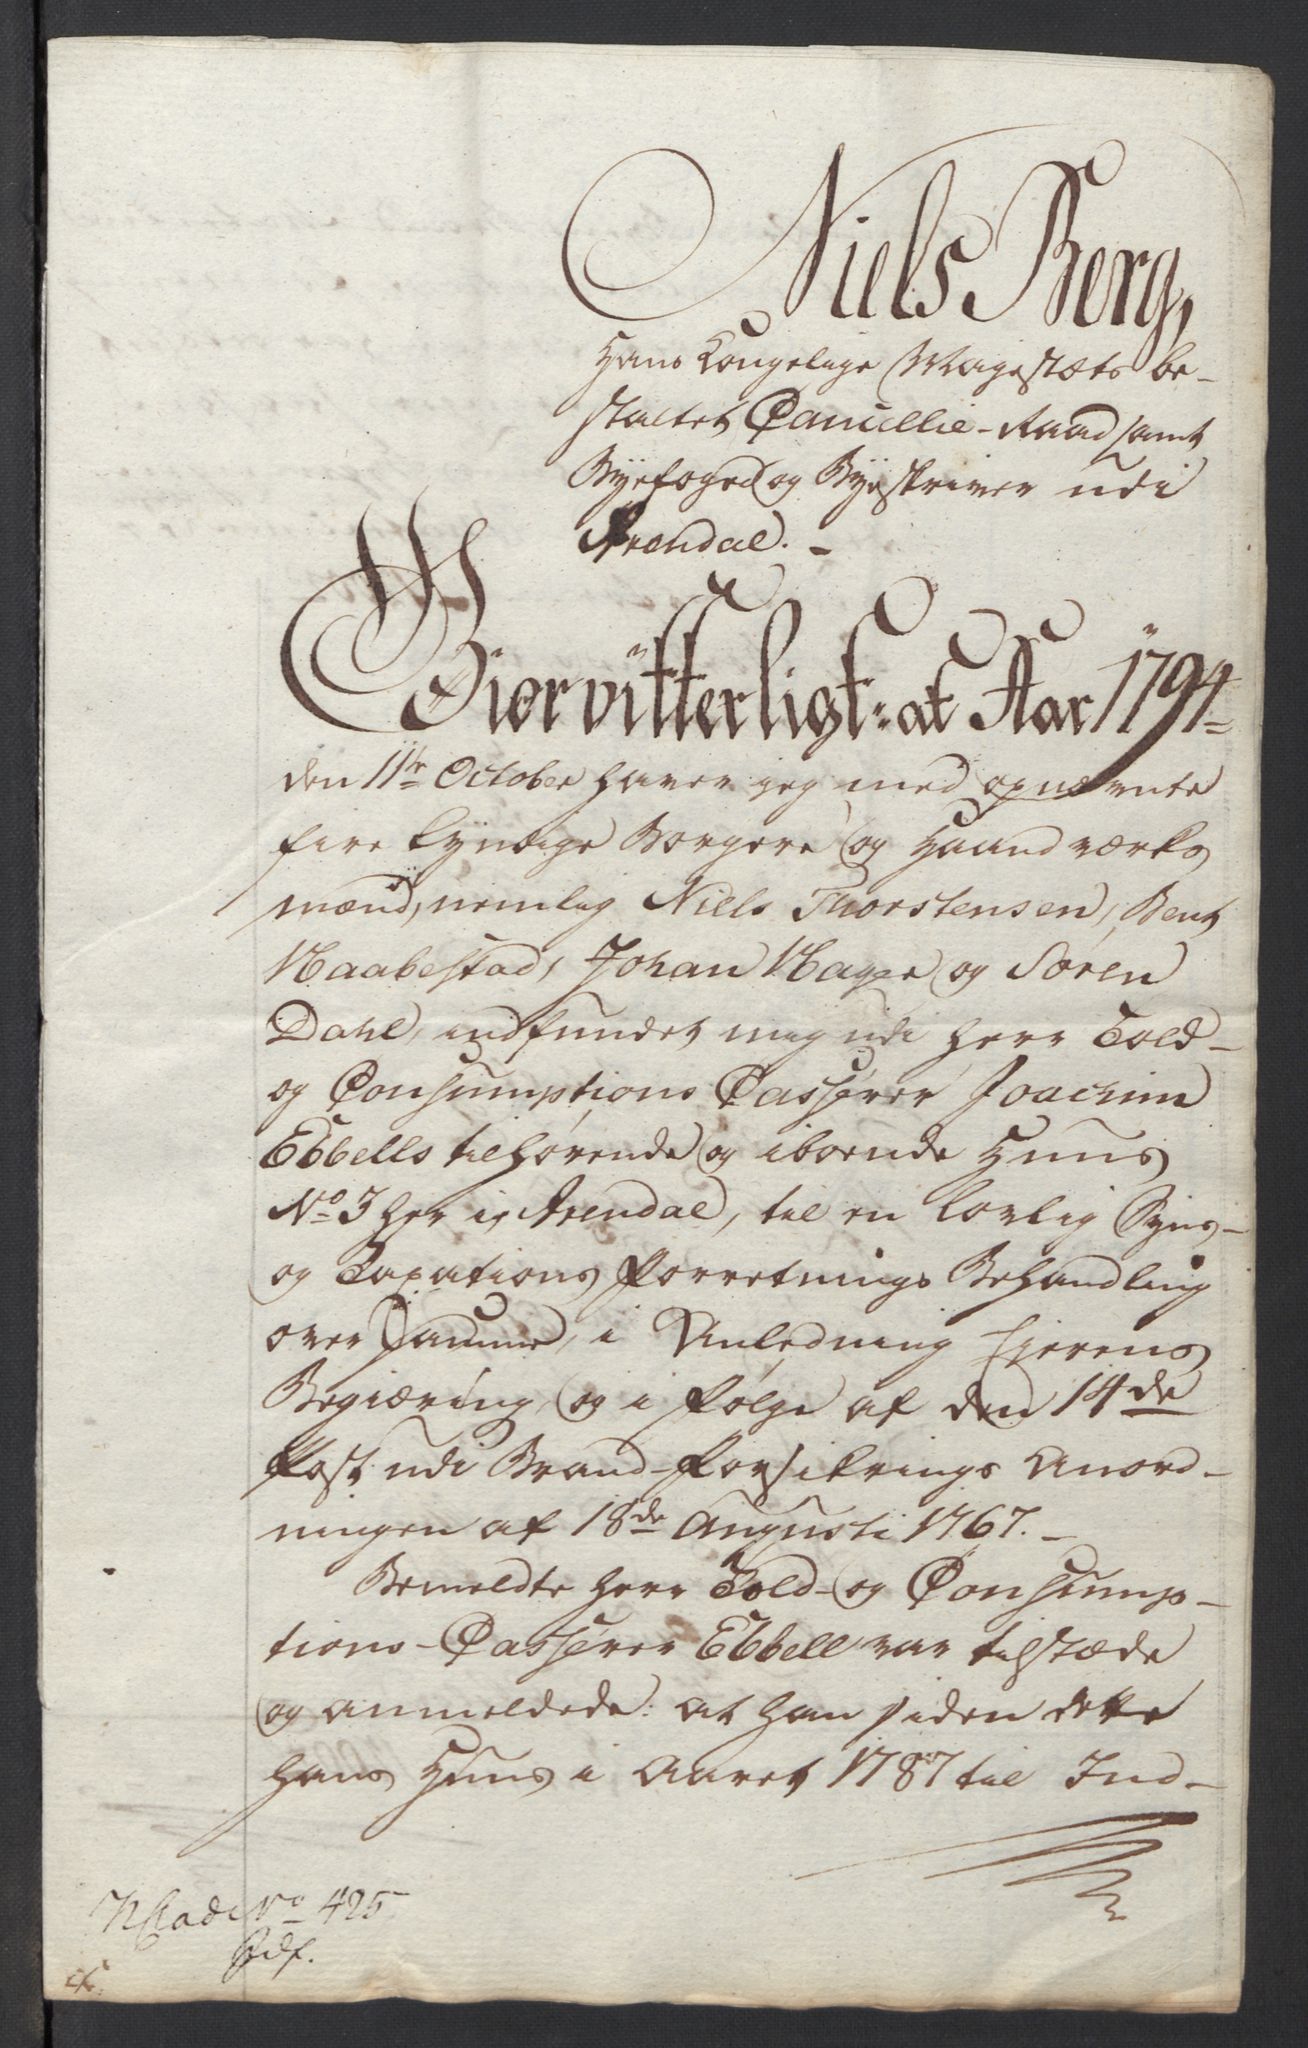 Niels Berg,
Hans Kongelige Magestæts be-
staltet Cancellie-Raad samt
Byefoged og Byeskriver udi
Arendal. -
Giør vitterligt: at Aar 1794
den 11te October haver jeg med opnævnte
fire kyndige Borgere og Haandværks
mænd, nemlig Niels Thorstensen, Bent
Naabestad, Johan Mager og Søren
Dahl, indfundet mig udi Herr Told-
og Consumptions Casserer Joachim
Ebbells tilhørende og iboende Huus
No 3 her i Arendal, til en lovlig Syns-
og Taxations Forretnings Behandling
over Samme, i Anledning Eierens
Begiæring, og i Følge af den 14de
Post udi Brand-Forsikrings Anord-
ningen af 18de Augusti 1767. -
Bemeldte Herr Told- og Consump-
tions-Casserer Ebbell var tilstæde
og anmeldede: at han siden dette
hans Huus i Aaret 1787 til Ind-
No 425